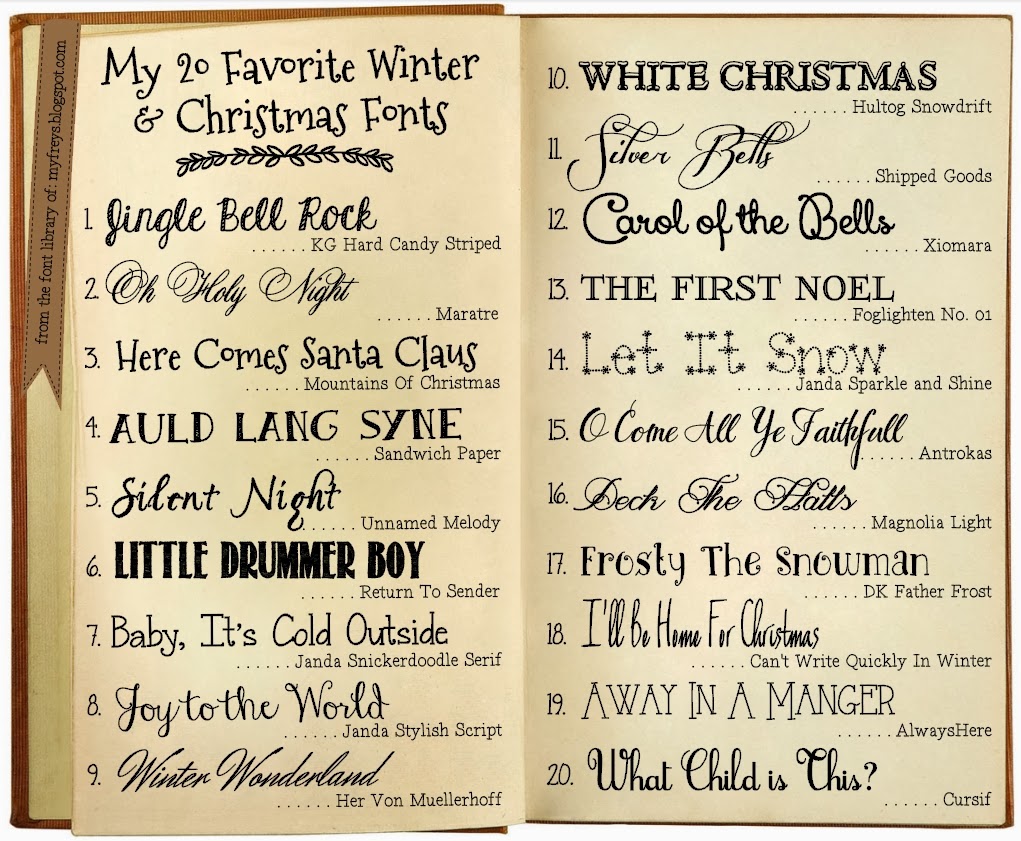 from the font library of: myfreys.blogspot.com
My 20 Favorite Winter
& Christmas Fonts
1. Jingle Bell Rock
. . . . . . KG Hard Candy Striped
2. Oh Holy Night
. . . . . . Maratre
3. Here Comes Santa Claus
. . . . . . Mountains Of Christmas
4. AULD LANG SYNE
. . . . . . Sandwich Paper
5. Silent Night
. . . . . . Unnamed Melody
6. LITTLE DRUMMER BOY
. . . . . . Return To Sender
7. Baby, It's Cold Outside
. . . . . . Janda Snickerdoodle Serif
8. Joy to the World
. . . . . . Janda Stylish Script
9. Winter Wonderland
. . . . . . Her Von Muellerhoff
10. WHITE CHRISTMAS
. . . . . . Hultog Snowdrift
11. Silver Bells
. . . . . . Shipped Goods
12. Carol of the Bells
. . . . . . Xiomara
13. THE FIRST NOEL
. . . . . . Foglighten No. 01
14. Let It Snow
. . . . . . Janda Sparkle and Shine
15. O Come All Ye Faithfull
. . . . . . Antrokas
16. Deck The Halls
. . . . . . Magnolia Light
17. Frosty The Snowman
. . . . . . DK Father Frost
18. I'll Be Home For Christmas
. . . . . . Can't Write Quickly In Winter
19. AWAY IN A MANGER
. . . . . . AlwaysHere
20. What Child is This?
. . . . . . Cursif